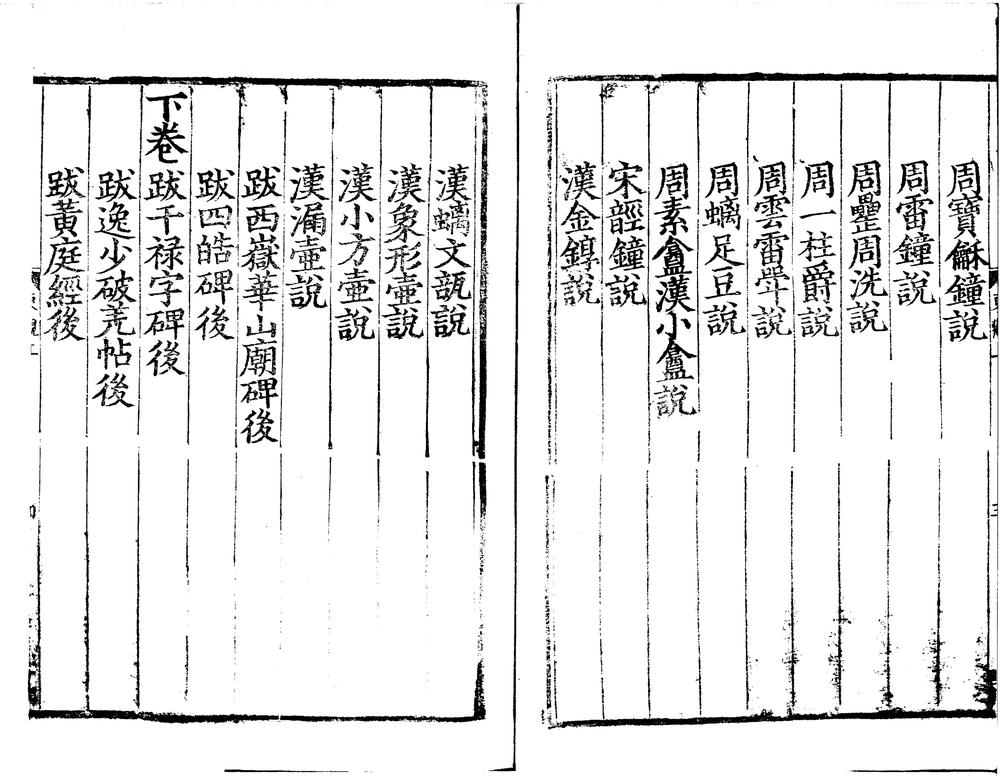 周寶龢鐘說
周雷鐘說
周罍周洗說
周一柱爵說
周雲雷斝說
周螭足豆說
周素盦漢小盦說
宋䪫鐘說
漢金錞說
漢螭文瓿說
漢象形壺說
漢小方壺說
漢漏壺說
跋西嶽華山廟碑後
跋四皓碑後
下卷 跋干祿字碑後
跋逸少破羌帖後
跋黃庭經後